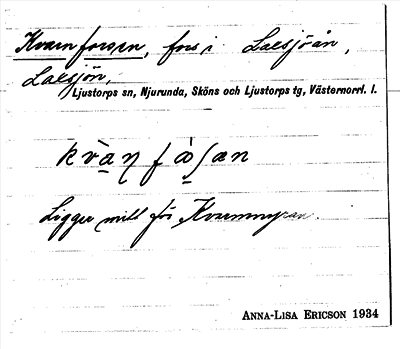 Kvarnforsen, fors i Laxsjöån,
Laxsjön,
Ljustorps sn, Njurunda, Sköns och Ljustorps tg, Västernorrl. l.
Ligger mitt för
ANNA-LISA ERICSON 1934